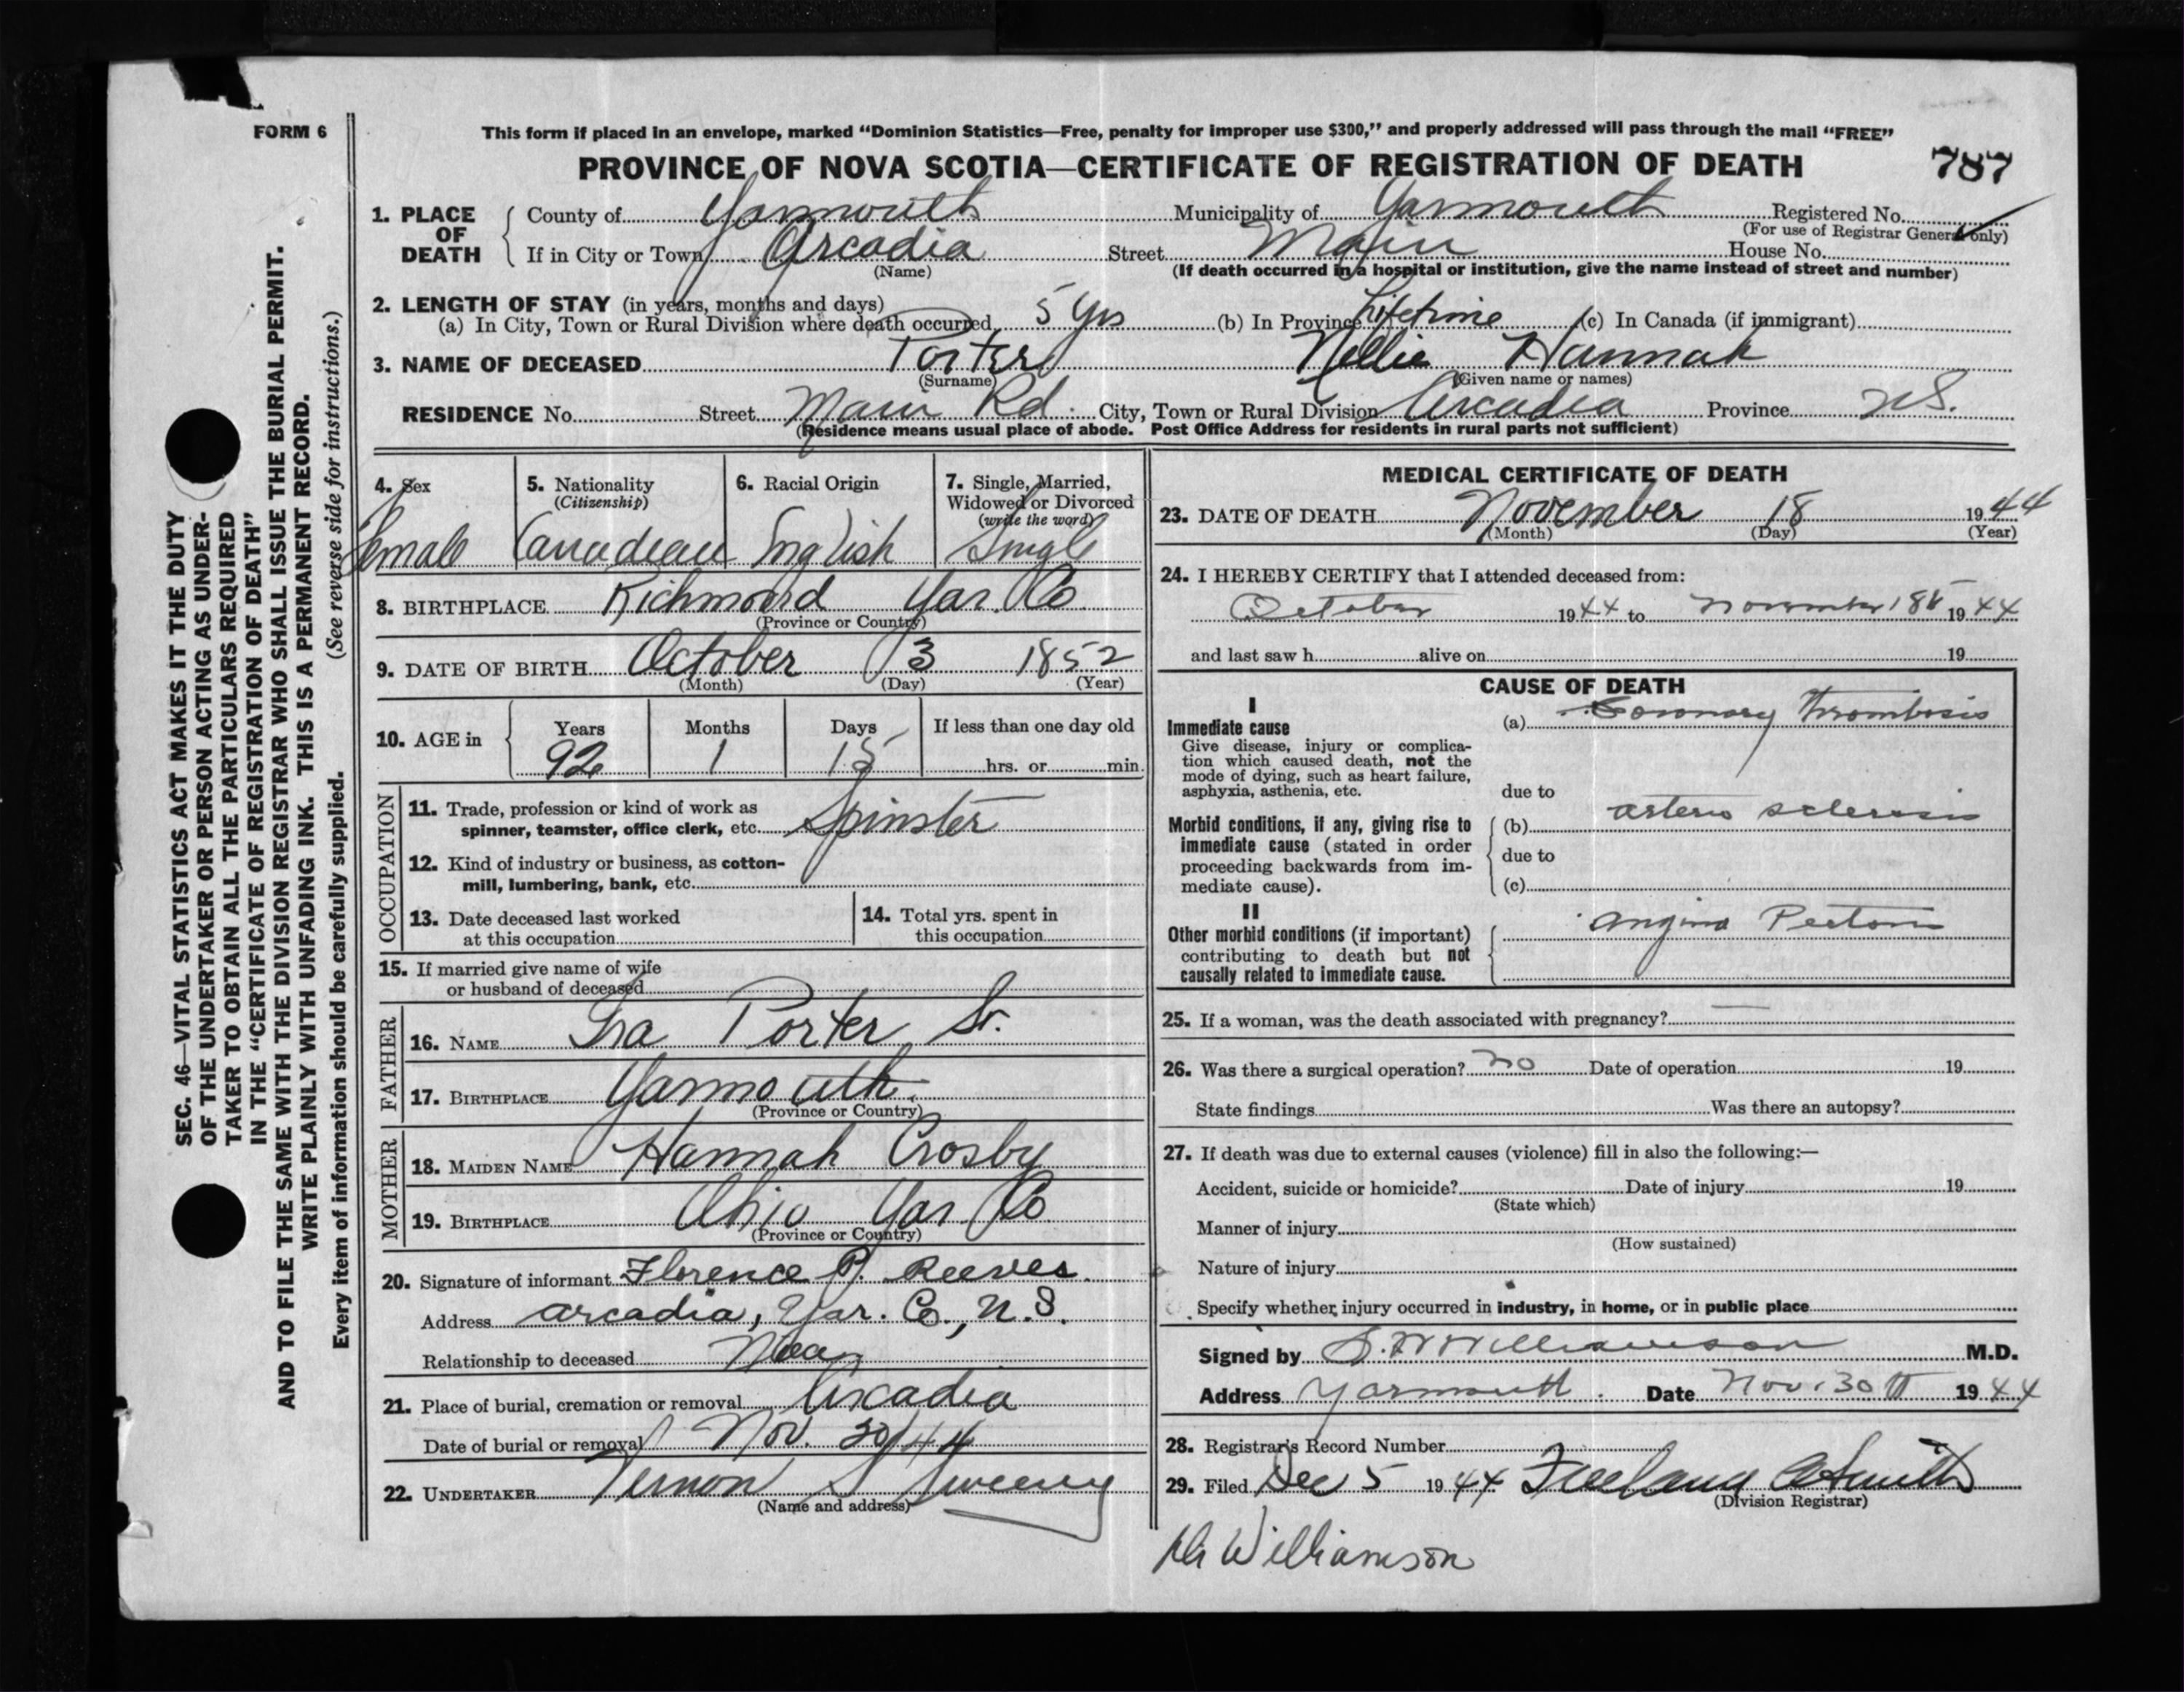 FORM 6
This form if placed in an envelope, marked “Dominion Statistics—Free, penalty for improper use $300,” and properly addressed will pass through the mail “FREE”
PROVINCE OF NOVA SCOTIA—CERTIFICATE OF REGISTRATION OF DEATH 787
1. PLACE OF DEATH { County of Yarmouth Municipality of Yarmouth Registered No.
(For use of Registrar General only)
If in City or Town Arcadia Street Main House No.
(Name) (If death occurred in a hospital or institution, give the name instead of street and number)
2. LENGTH OF STAY (in years, months and days)
(a) In City, Town or Rural Division where death occurred 5 Yrs (b) In Province Lifetime (c) In Canada (if immigrant)
3. NAME OF DECEASED Porter Nellie Hannah
(Surname) (Given name or names)
RESIDENCE No. Street Main Rd. City, Town or Rural Division Arcadia Province N.S.
(Residence means usual place of abode. Post Office Address for residents in rural parts not sufficient)
4. Sex 5. Nationality 6. Racial Origin 7. Single, Married,
(Citizenship) Widowed or Divorced
(write the word)
Female Canadian English Single
8. BIRTHPLACE Richmond Yar. Co
(Province or Country)
9. DATE OF BIRTH October 3 1852
(Month) (Day) (Year)
10. AGE in { Years Months Days If less than one day old
92 1 15 hrs. or min.
OCCUPATION
11. Trade, profession or kind of work as
spinner, teamster, office clerk, etc. Spinster
12. Kind of industry or business, as cotton-
mill, lumbering, bank, etc.
13. Date deceased last worked
at this occupation
14. Total yrs. spent in
this occupation
15. If married give name of wife
or husband of deceased
FATHER
16. NAME Ira Porter Sr.
17. BIRTHPLACE Yarmouth.
(Province or Country)
MOTHER
18. MAIDEN NAME Hannah Crosby
19. BIRTHPLACE Ohio Yar. Co
(Province or Country)
20. Signature of informant Florence P. Reeves.
Address arcadia, Yar. Co., N.S.
Relationship to deceased
21. Place of burial, cremation or removal Arcadia
Date of burial or removal Nov. 20/44
22. UNDERTAKER Vernon S Sweeny
(Name and address)
MEDICAL CERTIFICATE OF DEATH
23. DATE OF DEATH November 18 1944
(Month) (Day) (Year)
24. I HEREBY CERTIFY that I attended deceased from:
October 1944 to November 18th 1944
and last saw h alive on 19
CAUSE OF DEATH
I
Immediate cause (a) Coronary Thrombosis
Give disease, injury or complica-
tion which caused death, not the
mode of dying, such as heart failure,
asphyxia, asthenia, etc. due to
Morbid conditions, if any, giving rise to { (b) arterio sclerosis
immediate cause (stated in order
proceeding backwards from im- due to
mediate cause). (c)
II
Other morbid conditions (if important) { angina Pectoris
contributing to death but not
causally related to immediate cause.
25. If a woman, was the death associated with pregnancy? —
26. Was there a surgical operation? no Date of operation 19
State findings Was there an autopsy?
27. If death was due to external causes (violence) fill in also the following:—
Accident, suicide or homicide? Date of injury 19
(State which)
Manner of injury
(How sustained)
Nature of injury
Specify whether injury occurred in industry, in home, or in public place
Signed by S. W Williamson M.D.
Address Yarmouth. Date Nov. 30th 1944
28. Registrar's Record Number
29. Filed Dec 5 1944 Freeman A Smith
(Division Registrar)
Dr Williamson
SEC. 46—VITAL STATISTICS ACT MAKES IT THE DUTY
OF THE UNDERTAKER OR PERSON ACTING AS UNDER-
TAKER TO OBTAIN ALL THE PARTICULARS REQUIRED
IN THE “CERTIFICATE OF REGISTRATION OF DEATH”
AND TO FILE THE SAME WITH THE DIVISION REGISTRAR WHO SHALL ISSUE THE BURIAL PERMIT.
WRITE PLAINLY WITH UNFADING INK. THIS IS A PERMANENT RECORD.
Every item of information should be carefully supplied. (See reverse side for instructions.)